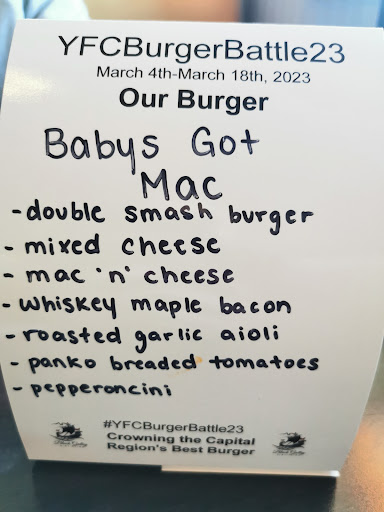 YFCBurgerBattle23
March 4th-March 18th, 2023
Our Burger
Babys Got
Mac
- double smash burger
- mixed cheese
- mac 'n' cheese
- whiskey maple bacon
- roasted garlic aioli
- panko breaded tomatoes
- pepperoncini
#YFCBurgerBattle23
Crowning the Capital
Region's Best Burger